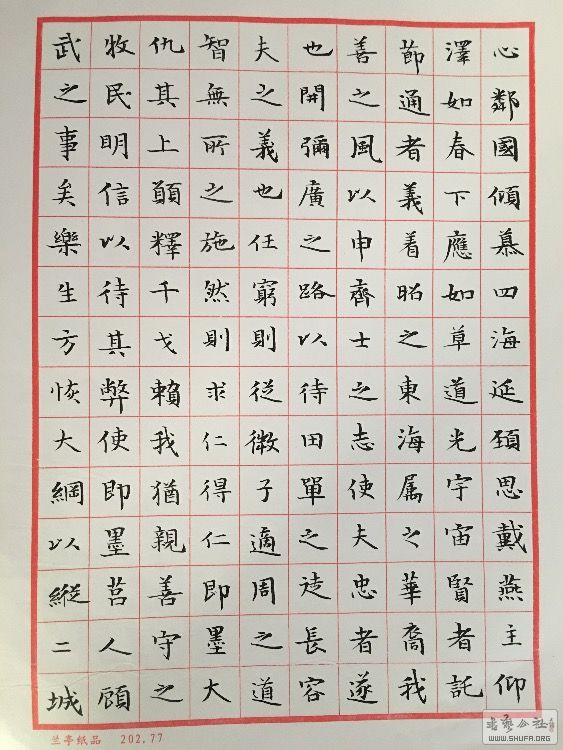 武之事矣樂生方恢大綱以縱二城
牧民明信以待其弊使即墨莒人顧
仇其上願釋干戈賴我猶親善守之
智無所之施然則求仁得仁即墨大
夫之義也任窮則從微子適周之道
也開彌廣之路以待田單之徒長容
善之風以申齊士之志使夫忠者遂
節通者義着昭之東海属之華裔我
澤如春下應如草道光宇宙賢者託
心鄰國傾慕四海延頸思戴燕主仰
兰亭纸品 202.77
书艺公社
WWW.SHUFA.ORG